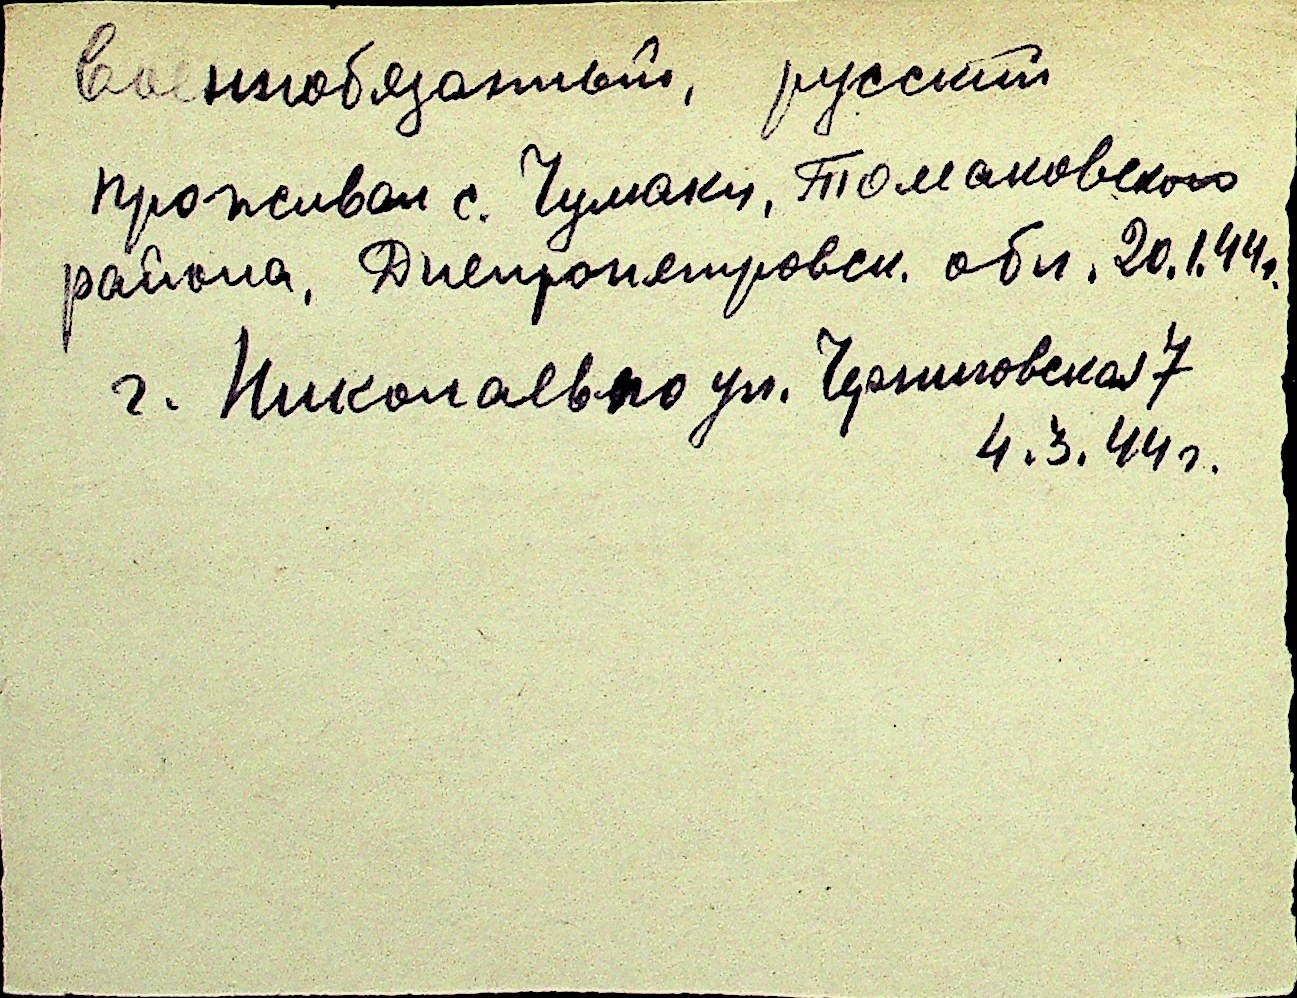 Военнообязанный, русский
проживал с. Чумаки, Томаковского
района, Днепропетровск. обл. 20.1.44г.
г. Николаев по ул. Черниговская 7
4.3.44г.